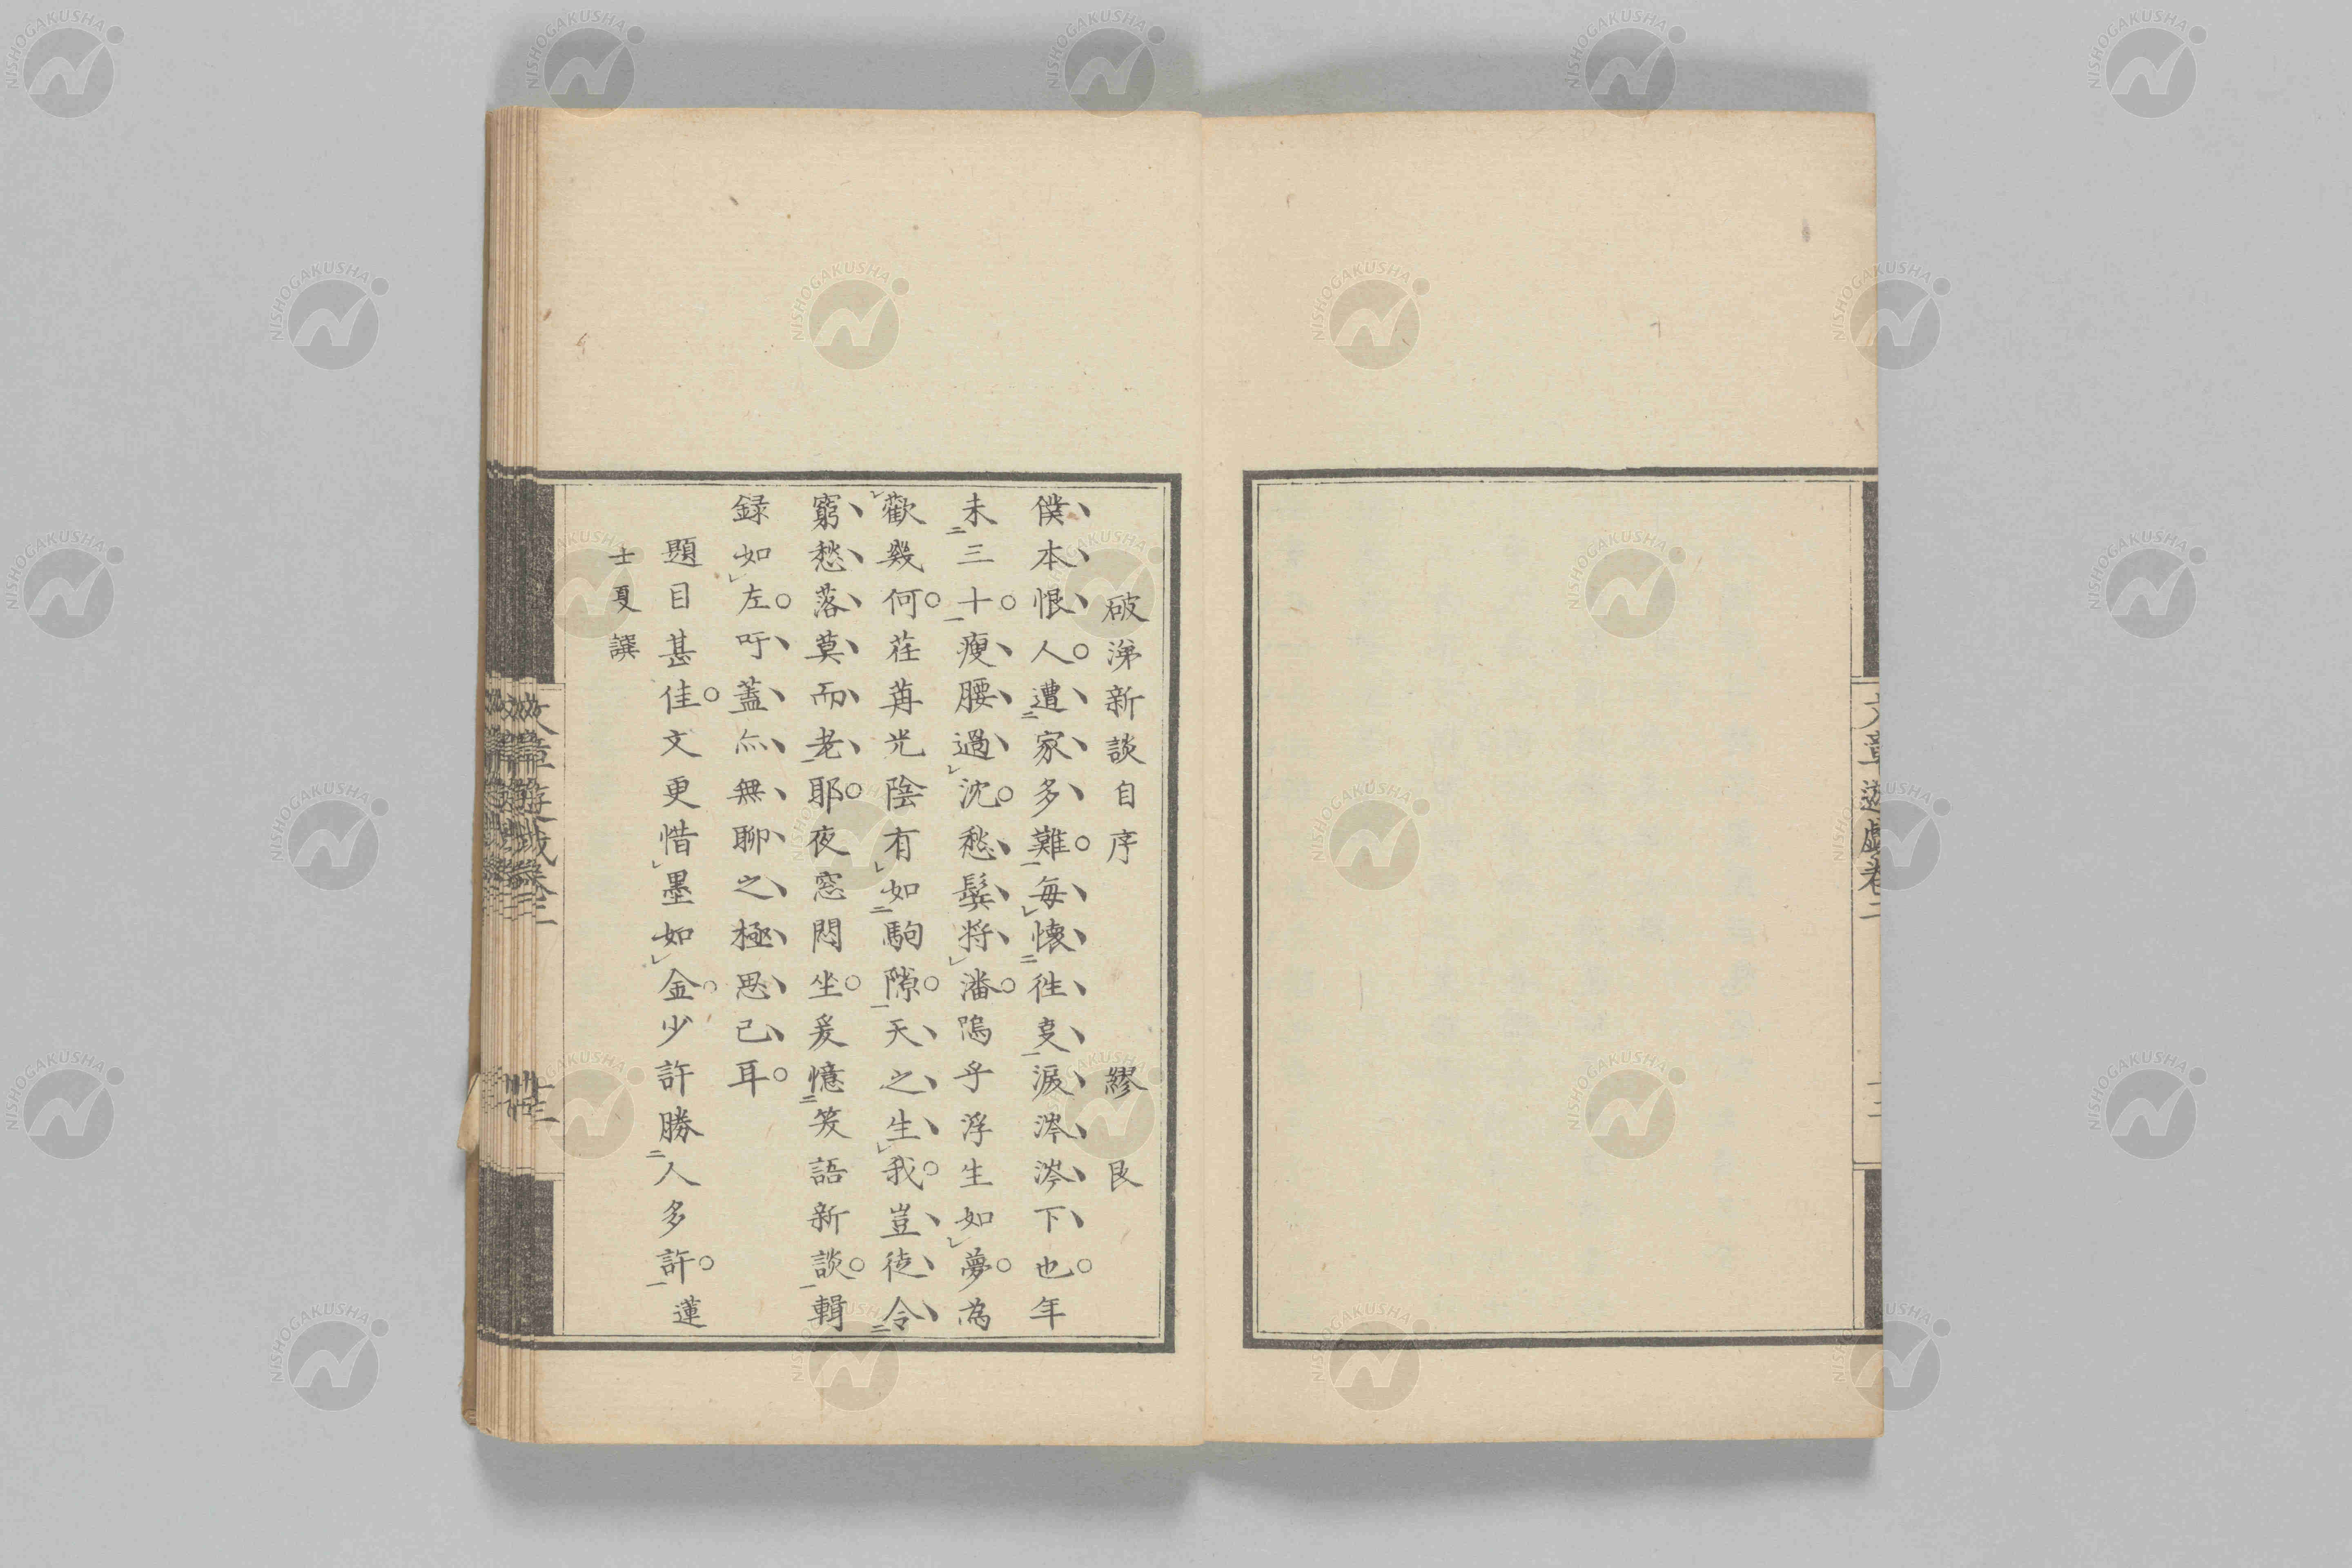 破涕新談自序　繆艮
僕本恨人遭家多難每懷往事淚涔涔下也年
未三十瘦腰過沈愁鬓將潘嗚乎浮生如夢為
歡幾何荏苒光陰有如駒隙天之生我豈徒令
窮愁落莫而老耶夜窓悶坐爰憶笑語新談輯
録如左吁蓋亦無聊之極思已耳
題目甚佳文更惜墨如金少許勝人多許蓮
士夏譔
文章遊戲卷二
NISHOGAKUSHA